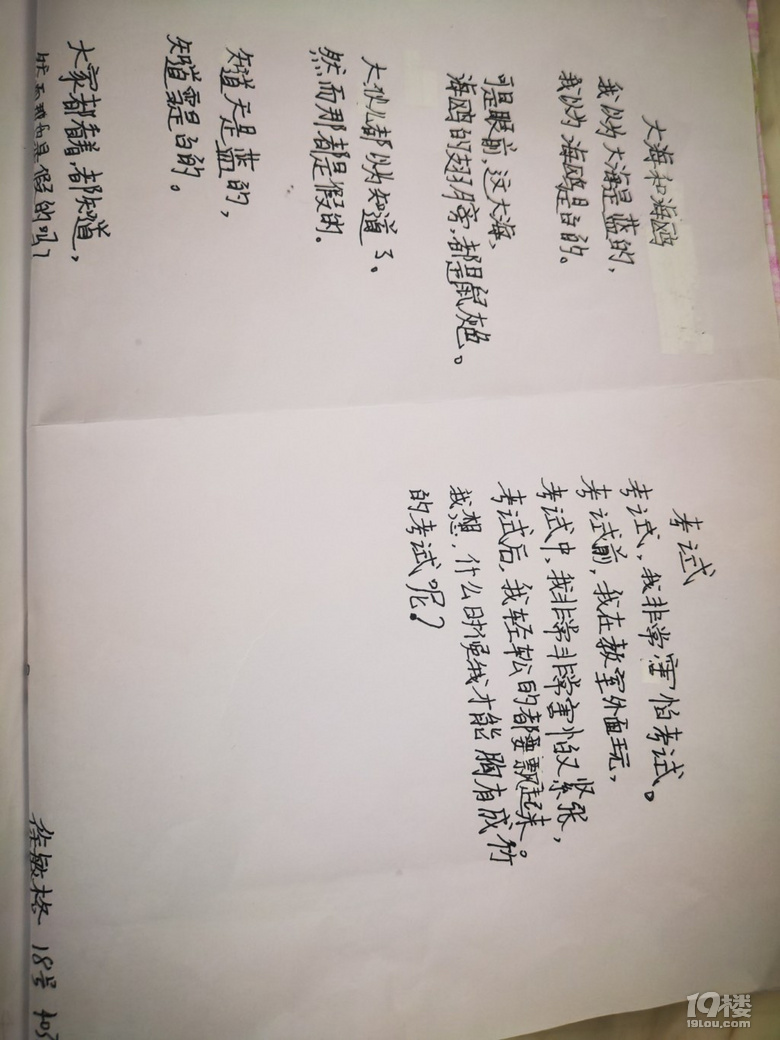 大海和海鸥
我以为大海是蓝的，
我以为海鸥是白的。
可是眼前，这大海、
海鸥的翅膀，都是鼠灰色。
大伙儿都以为知道了。
然而那都是假的。
知道天是蓝的，
知道雪是白的。
大家都看着，都知道，
然而那也是假的吗？
考试
考试，我非常害怕考试。
考试前，我在教室外面玩，
考试中，我非常非常害怕又紧张，
考试后，我轻松的都要飘起来。
我想，什么时候我才能胸有成竹
的考试呢？
徐敏格 18号
19楼
19lou.com